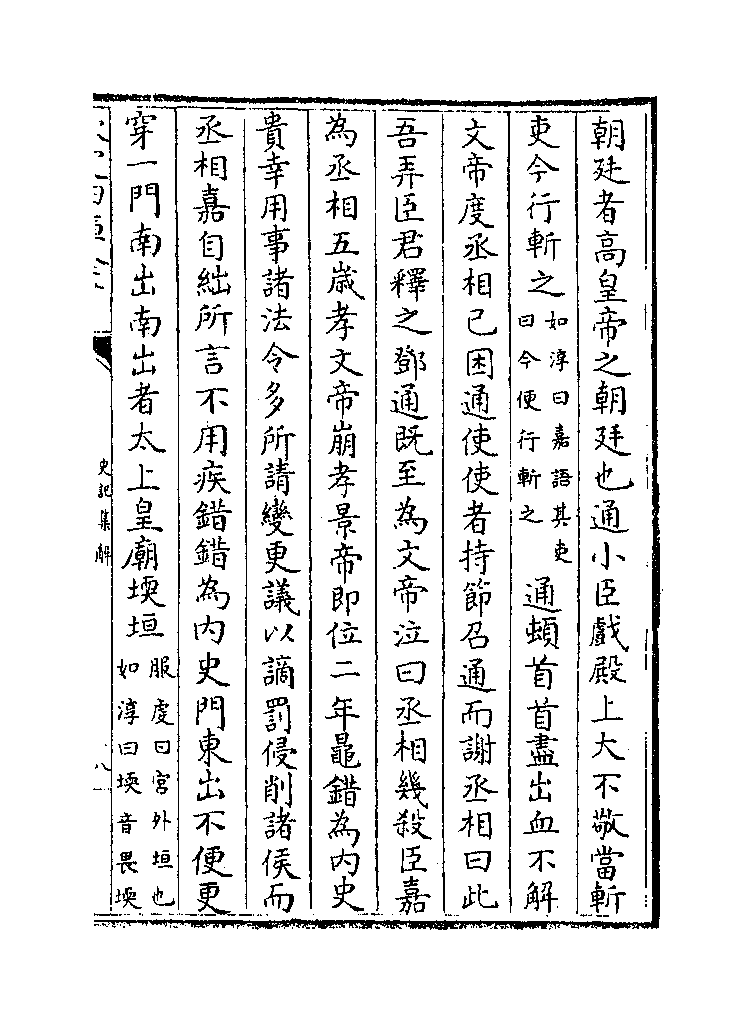 朝廷者高皇帝之朝廷也通小臣戲殿上大不敬當斬
吏今行斬之如淳曰嘉語其吏曰今便行斬之通頓首首盡出血不解
文帝度丞相已困通使使者持節召通而謝丞相曰此
吾弄臣君釋之鄧通既至為文帝泣曰丞相幾殺臣嘉
為丞相五嵗孝文帝崩孝景帝即位二年鼂錯為内史
貴幸用事諸法令多所請變更議以謫罰侵削諸侯而
丞相嘉自絀所言不用疾錯錯為内史門東出不便更
穿一門南出南出者太上皇廟堧垣服虔曰宫外垣也如淳曰堧音畏堧
史記集解